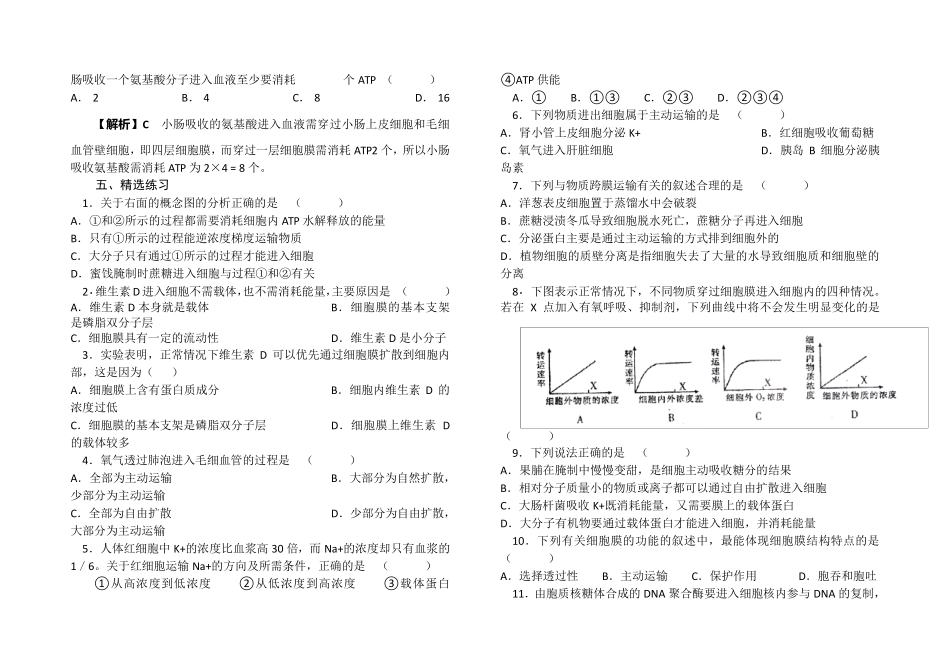 肠吸收一个氨基酸分子进入血液至少要消耗 个 ATP （ ）
A． 2 B． 4 C． 8 D． 16
【解析】C 小肠吸收的氨基酸进入血液需穿过小肠上皮细胞和毛细
血管壁细胞，即四层细胞膜，而穿过一层细胞膜需消耗 ATP2 个，所以小肠
吸收氨基酸需消耗 ATP 为 2×4 = 8 个。
五、精选练习
1．关于右面的概念图的分析正确的是 （ ）
A．①和②所示的过程都需要消耗细胞内 ATP 水解释放的能量
B．只有①所示的过程能逆浓度梯度运输物质
C．大分子只有通过①所示的过程才能进入细胞
D．蜜饯腌制时蔗糖进入细胞与过程①和②有关
2．维生素 D 进入细胞不需载体，也不需消耗能量，主要原因是 （ ）
A．维生素 D 本身就是载体 B．细胞膜的基本支架
是磷脂双分子层
C．细胞膜具有一定的流动性 D．维生素 D 是小分子
3．实验表明，正常情况下维生素 D 可以优先通过细胞膜扩散到细胞内
部，这是因为（ ）
A．细胞膜上含有蛋白质成分 B．细胞内维生素 D 的
浓度过低
C．细胞膜的基本支架是磷脂双分子层 D．细胞膜上维生素 D
的载体较多
4．氧气透过肺泡进入毛细血管的过程是 （ ）
A．全部为主动运输 B．大部分为自然扩散，
少部分为主动运输
C．全部为自由扩散 D．少部分为自由扩散，
大部分为主动运输
5．人体红细胞中 K+的浓度比血浆高 30 倍，而 Na+的浓度却只有血浆的
1／6。关于红细胞运输 Na+的方向及所需条件，正确的是 （ ）
①从高浓度到低浓度 ②从低浓度到高浓度 ③载体蛋白
④ATP 供能
A．① B．①③ C．②③ D．②③④
6．下列物质进出细胞属于主动运输的是 （ ）
A．肾小管上皮细胞分泌 K+ B．红细胞吸收葡萄糖
C．氧气进入肝脏细胞 D．胰岛 B 细胞分泌胰
岛素
7．下列与物质跨膜运输有关的叙述合理的是 （ ）
A．洋葱表皮细胞置于蒸馏水中会破裂
B．蔗糖浸渍冬瓜导致细胞脱水死亡，蔗糖分子再进入细胞
C．分泌蛋白主要是通过主动运输的方式排到细胞外的
D．植物细胞的质壁分离是指细胞失去了大量的水导致细胞质和细胞壁的
分离
8．下图表示正常情况下，不同物质穿过细胞膜进入细胞内的四种情况。
若在 X 点加入有氧呼吸、抑制剂，下列曲线中将不会发生明显变化的是
转运速率 X 细胞外物质的浓度 A
转运速率 X 细胞内外浓度差 B
转运速率 X 细胞外 O₂浓度 C
细胞内物质浓度 X 细胞外物质的浓度 D
（ ）
9．下列说法正确的是 （ ）
A．果脯在腌制中慢慢变甜，是细胞主动吸收糖分的结果
B．相对分子质量小的物质或离子都可以通过自由扩散进入细胞
C．大肠杆菌吸收 K+既消耗能量，又需要膜上的载体蛋白
D．大分子有机物要通过载体蛋白才能进入细胞，并消耗能量
10．下列有关细胞膜的功能的叙述中，最能体现细胞膜结构特点的是
（ ）
A．选择透过性 B．主动运输 C．保护作用 D．胞吞和胞吐
11．由胞质核糖体合成的 DNA 聚合酶要进入细胞核内参与 DNA 的复制，